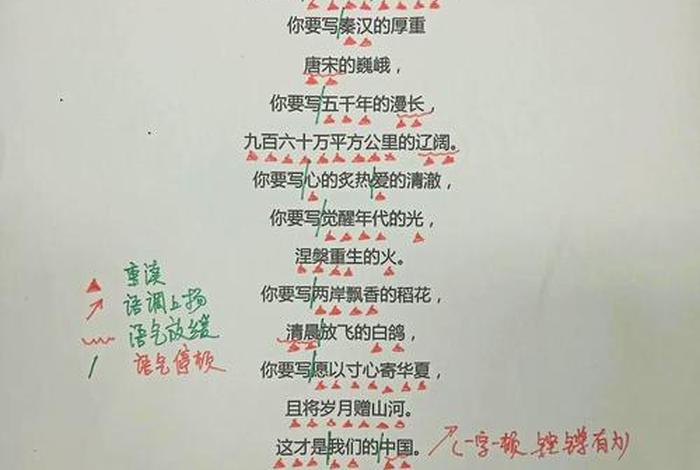 你要写秦汉的厚重
唐宋的巍峨，
你要写五千年的漫长，
九百六十万平方公里的辽阔。
你要写心的炙热爱的清澈，
你要写觉醒年代的光，
涅槃重生的火。
你要写两岸飘香的稻花，
清晨放飞的白鸽，
你要写愿以寸心寄华夏，
且将岁月赠山河。
这才是我们的中国。
重读
语调上扬
语气放缓
语气停顿
(一字一顿 铿锵有力)